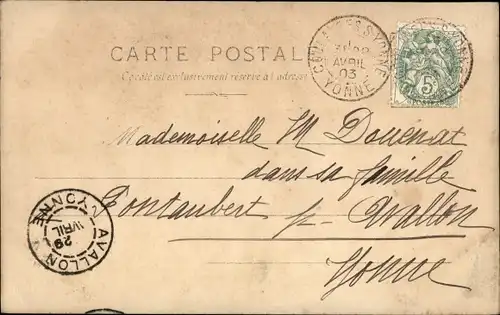 CARTE POSTALE
Ce côté est exclusivement réservé à l'adresse
AVRIL
03
YONNE
5
Mademoiselle M Douenat
dans sa famille
Pontaubert p. Avallon
Yonne
AVALLON YONNE
29
AVRIL